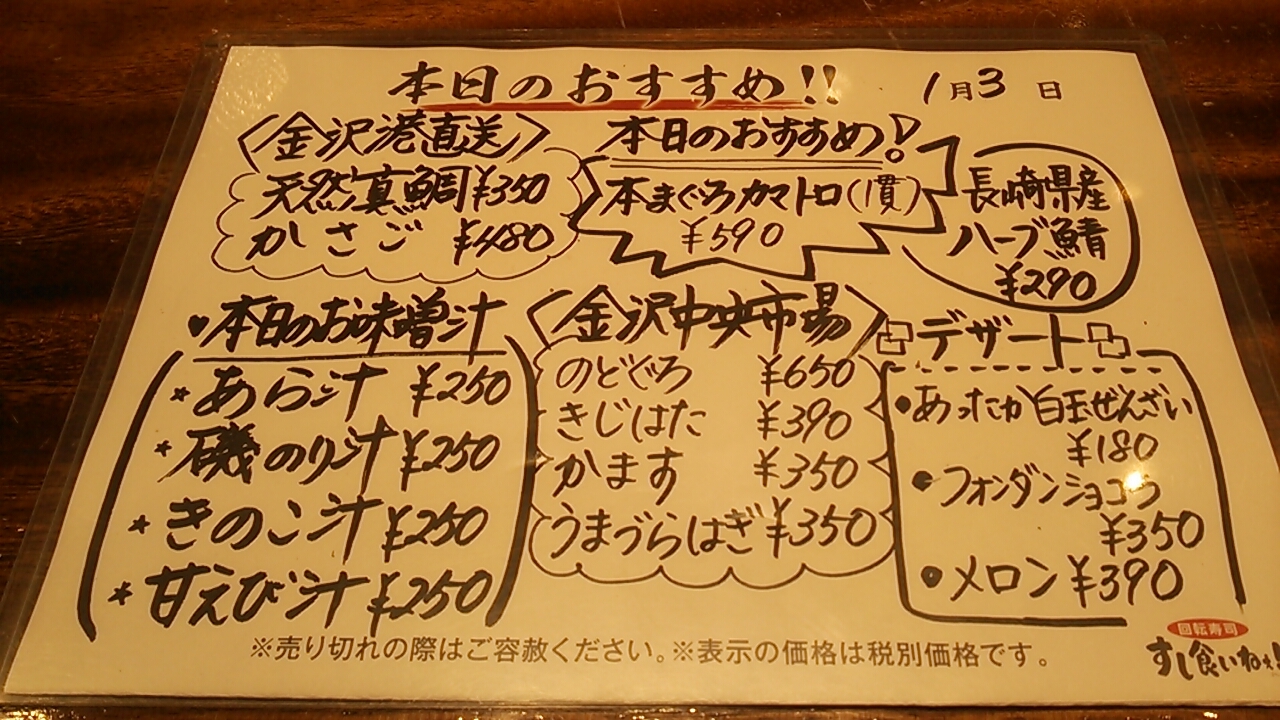 本日のおすすめ!!
1月3日
〈金沢港直送〉
天然真鯛 ¥350
かさご ¥480
本日のおすすめ!
本まぐろカマトロ(1貫)
¥590
長崎県産
ハーブ鯖
¥290
本日のお味噌汁
★あら汁 ¥250
★磯のり汁 ¥250
★きのこ汁 ¥250
★甘えび汁 ¥250
〈金沢中央市場〉
のどぐろ ¥650
きじはた ¥390
かます ¥350
うまづらはぎ ¥350
デザート
●あったか白玉ぜんざい
¥180
●フォンダンショコラ
¥350
●メロン ¥390
※売り切れの際はご容赦ください。※表示の価格は税別価格です。
回転寿司
すし食いねぇ!